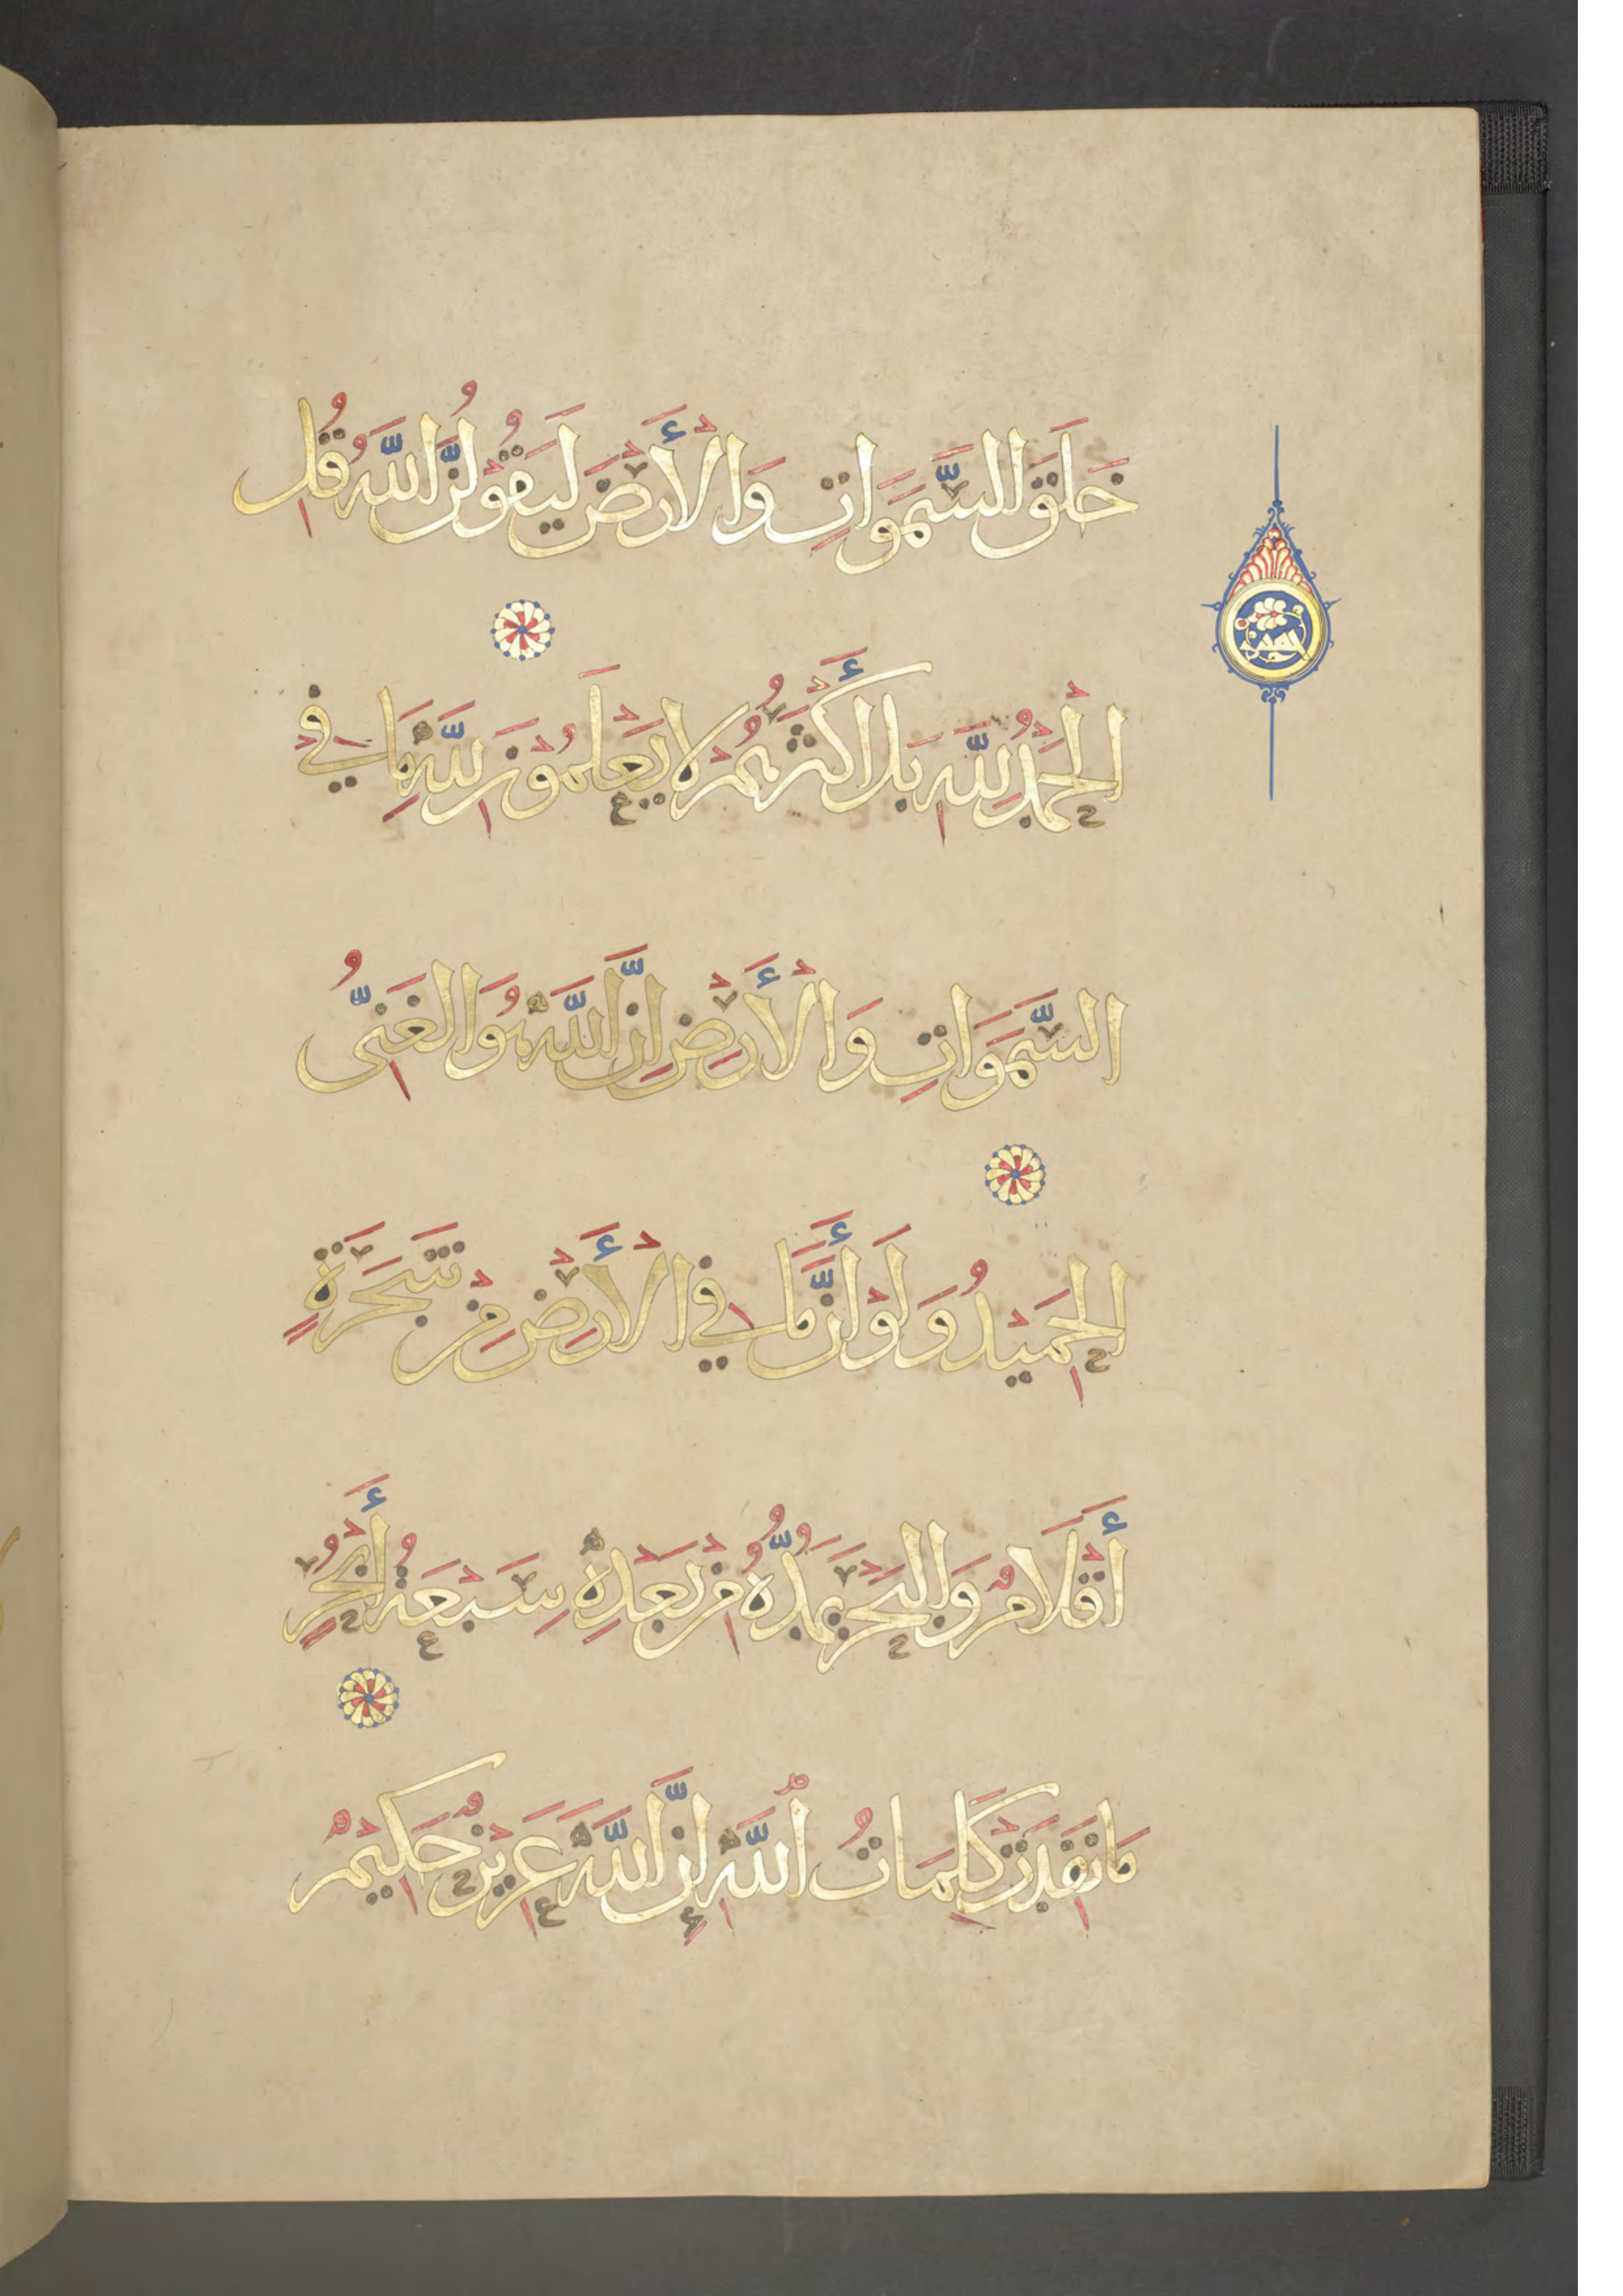 خَلَقَ السَّمَوَاتِ وَالْأَرْضَ لَيَقُولُنَّ اللَّهُ قُلِ
الْحَمْدُ لِلَّهِ بَلْ أَكْثَرُهُمْ لَا يَعْلَمُونَ لِلَّهِ مَا فِي
السَّمَوَاتِ وَالْأَرْضِ إِنَّ اللَّهَ هُوَ الْغَنِيُّ
الْحَمِيدُ وَلَوْ أَنَّ مَا فِي الْأَرْضِ مِنْ شَجَرَةٍ
أَقْلَامٌ وَالْبَحْرُ يَمُدُّهُ مِنْ بَعْدِهِ سَبْعَةُ أَبْحُرٍ
مَا نَفِدَتْ كَلِمَاتُ اللَّهِ إِنَّ اللَّهَ عَزِيزٌ حَكِيمٌ